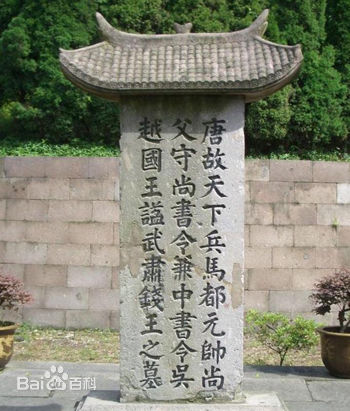 唐故天下兵馬都元帥尚
父守尚書令兼中書令吳
越國王謚武肅錢王之墓
Bai百科